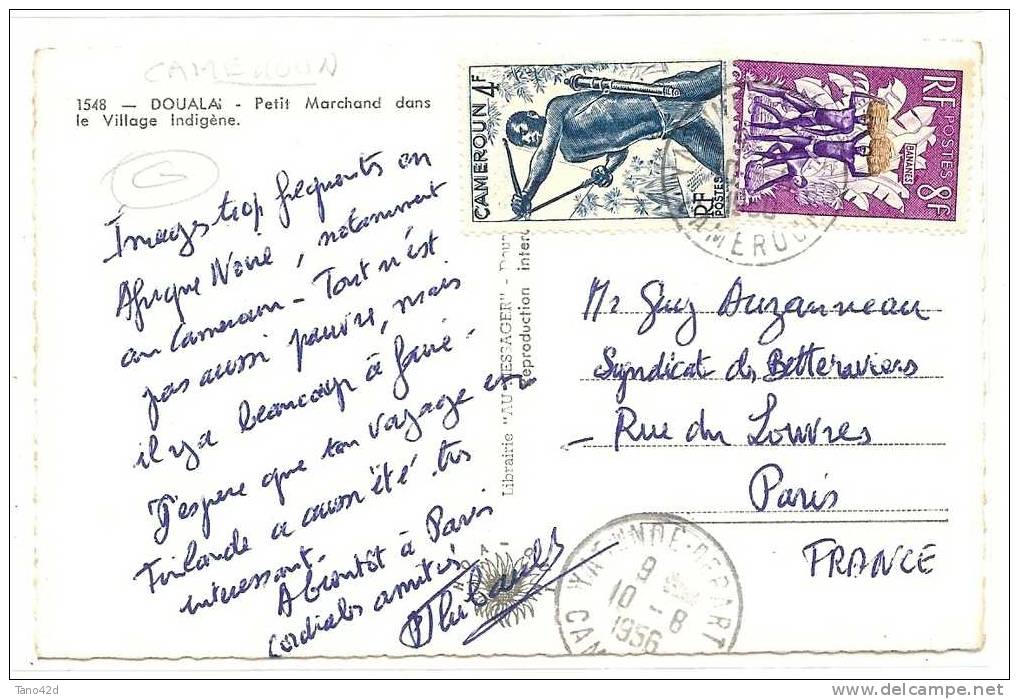 CAMEROUN
1548 — DOUALAï - Petit Marchand dans
le Village Indigène.
Images trop fréquents en
Afrique Noire, notamment
au Cameroun - Tout n'est
pas aussi pauvre, mais
il y a beaucoup à faire -
J'espère que ton voyage en
Finlande a aussi été très
intéressant -
A bientôt à Paris
cordiales amitiés
Librairie "AU MESSAGER" - Doua
Reproduction interd
CAMEROUN 4F
RF
POSTES
RF POSTES 8F
BANANES
CAMEROUN
Mr Guy Auzanneau
Syndicat des Betteraviers
- Rue du Louvres
Paris
FRANCE
YAOUNDE-DEPART
9
10 - 8
1956
CAM
Tano42d
www.delcampe.net